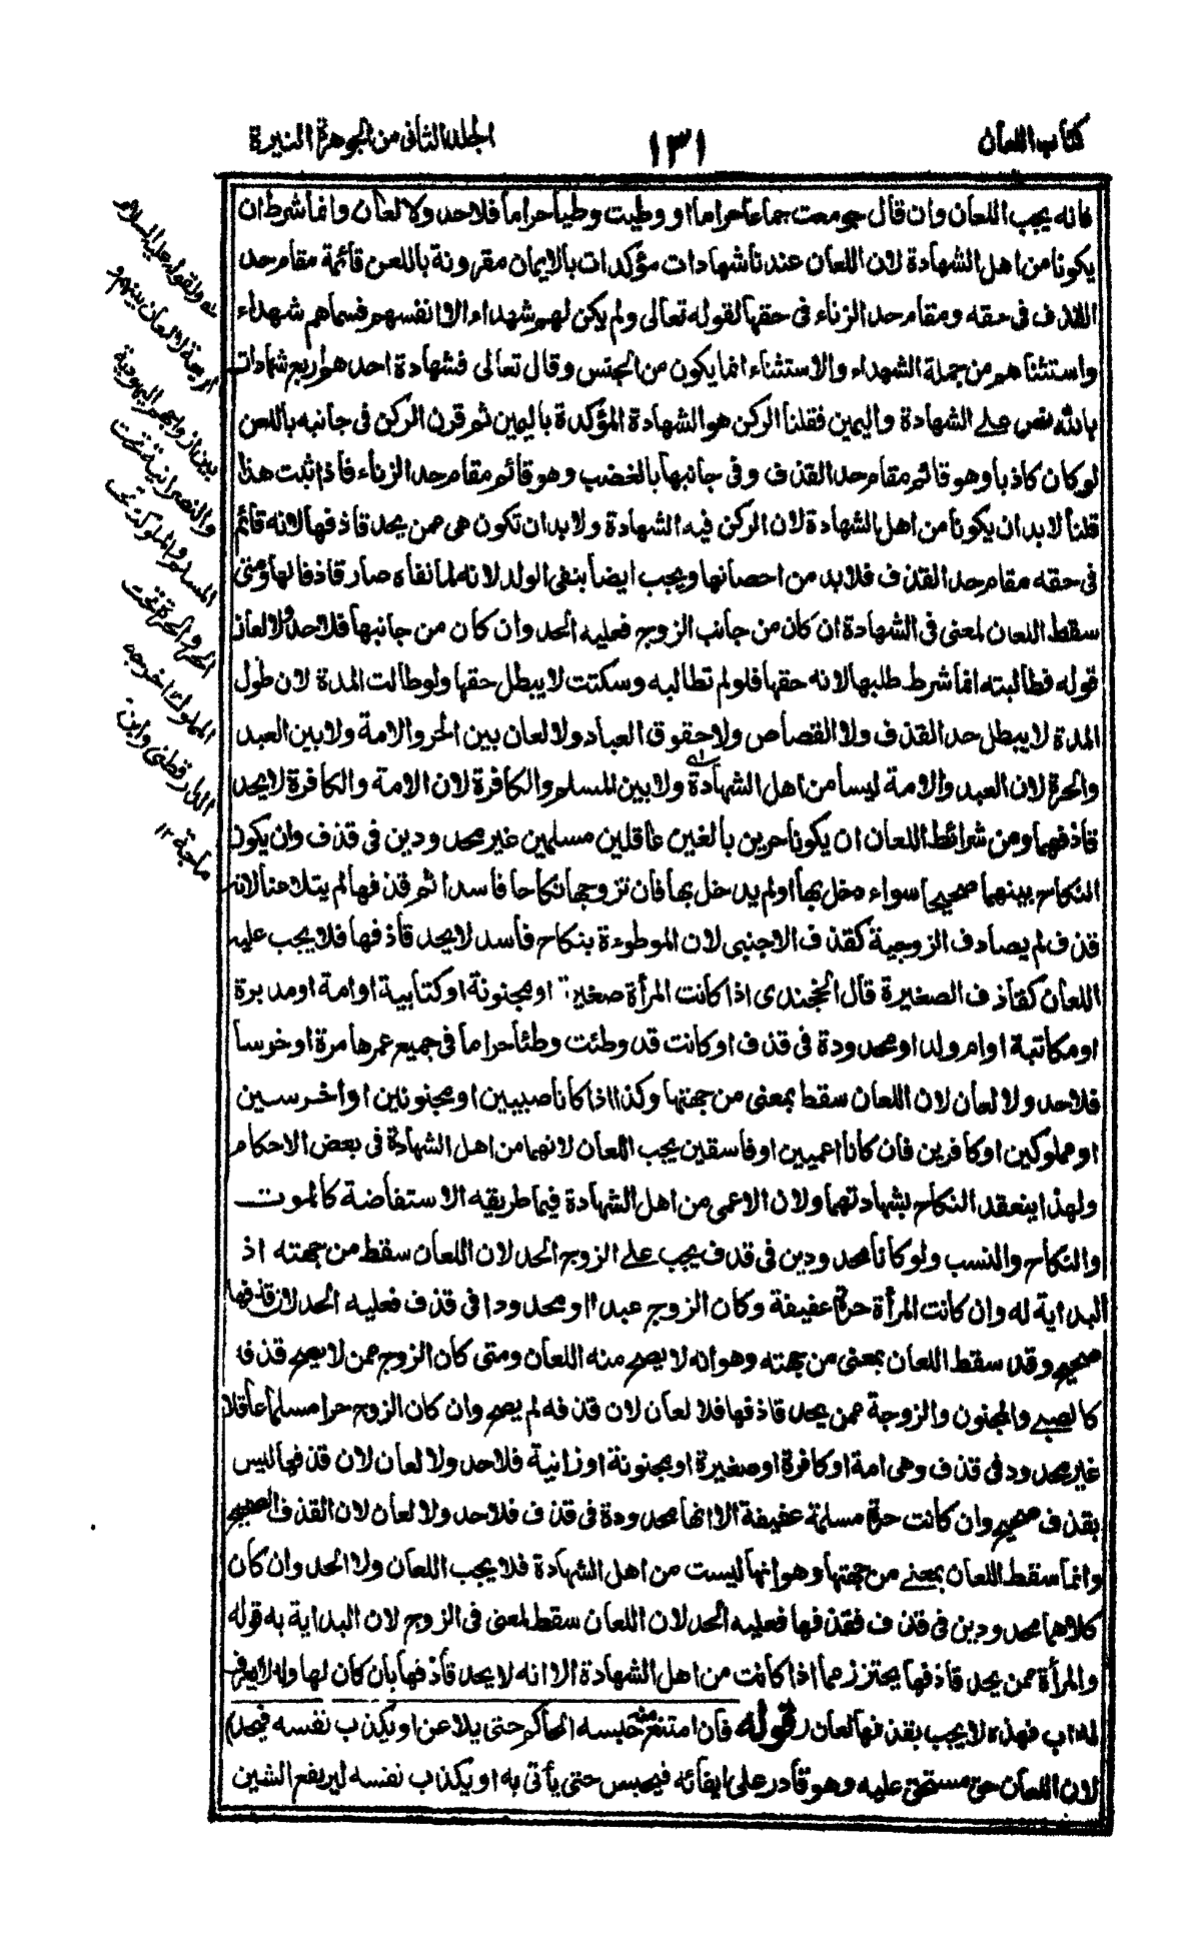 كتاب اللعان
١٣١
الجلد الثانى من الجوهرة النيرة
فانه يجب اللعان وان قال جومعت جماعا حراما او وطيت وطيا حراما فلا حد ولا لعان وانما شرط ان
يكونا من اهل الشهادة لان اللعان عندنا شهادات مؤكدات بالايمان مقرونة باللعن قائمة مقام حد
القذف فى حقه ومقام حد الزناء فى حقها لقوله تعالى ولم يكن لهم شهداء الا انفسهم فسماهم شهداء
واستثناهم من جملة الشهداء والاستثناء انما يكون من الجنس وقال تعالى فشهادة احدهم اربع شهادات
بالله نص على الشهادة واليمين فقلنا الركن هو الشهادة المؤكدة باليمين ثم قرن الركن فى جانبه باللعن
لو كان كاذبا وهو قائم مقام حد القذف وفى جانبها بالغضب وهو قائم مقام حد الزناء فاذا ثبت هذا
قلنا لا بد ان يكونا من اهل الشهادة لان الركن فيه الشهادة ولا بد ان تكون هى ممن يحد قاذفها لانه قائم
فى حقه مقام حد القذف فلا بد من احصانها ويجب ايضا بنفى الولد لانه لما نفاه صار قاذفا لها ومتى
سقط اللعان لمعنى فى الشهادة ان كان من جانب الزوج فعليه الحد وان كان من جانبها فلا حد ولا لعان
قوله فطالبته انما شرط طلبها لانه حقها فلو لم تطالبه وسكتت لا يبطل حقها ولو طالت المدة لان طول
المدة لا يبطل حد القذف ولا القصاص ولا حقوق العباد ولا لعان بين الحر والامة ولا بين العبد
والحرة لان العبد والامة ليسا من اهل الشهادة ولا بين المسلم والكافرة لان الامة والكافرة لا يحد
قاذفهما ومن شرائط اللعان ان يكونا حرين بالغين عاقلين مسلمين غير محدودين فى قذف وان يكون
النكاح بينهما صحيحا سواء دخل بها او لم يدخل بها فان تزوجها نكاحا فاسدا ثم قذفها لم يتلاعنا لانه
قذف لم يصادف الزوجية كقذف الاجنبى لان الموطوءة بنكاح فاسد لا يحد قاذفها فلا يجب عليه
اللعان كقاذف الصغيرة قال الخجندى اذا كانت المرأة صغيرة او مجنونة او كتابية او امة او مدبرة
او مكاتبة او ام ولد او محدودة فى قذف او كانت قد وطئت وطئا حراما فى جميع عمرها مرة او خرسا
فلا حد ولا لعان لان اللعان سقط بمعنى من جهتها وكذا اذا كانا صبيين او مجنونين او اخرسين
او مملوكين او كافرين فان كانا اعميين او فاسقين يجب اللعان لانهما من اهل الشهادة فى بعض الاحكام
ولهذا ينعقد النكاح بشهادتهما ولان الاعمى من اهل الشهادة فيما طريقه الاستفاضة كالموت
والنكاح والنسب ولو كانا محدودين فى قذف يجب على الزوج الحد لان اللعان سقط من جهته اذ
البداية له وان كانت المرأة حرة عفيفة وكان الزوج عبدا او محدودا فى قذف فعليه الحد لان قذفها
صحيح وقد سقط اللعان بمعنى من جهته وهو انه لا يصح منه اللعان ومتى كان الزوج ممن لا يصح قذفه
كالصبى والمجنون والزوجة ممن يحد قاذفها فلا لعان لان قذفه لم يصح وان كان الزوج حرا مسلما عاقلا
غير محدود فى قذف وهى امة او كافرة او صغيرة او مجنونة او زانية فلا حد ولا لعان لان قذفها ليس
بقذف صحيح وان كانت حرة مسلمة عفيفة الا انها محدودة فى قذف فلا حد ولا لعان لان القذف الصحيح
وانما سقط اللعان بمعنى من جهتها وهو انها ليست من اهل الشهادة فلا يجب اللعان ولا الحد وان كان
كلاهما محدودين فى قذف فقذفها فعليه الحد لان اللعان سقط لمعنى فى الزوج لان البداية به قوله
والمرأة ممن يحد قاذفها يحترز مما اذا كانت من اهل الشهادة الا انه لا يحد قاذفها بان كان لها ولد لا يعرف
له اب فهذه لا يجب بقذفها لعان (قوله فان امتنع منه حبسه الحاكم حتى يلاعن او يكذب نفسه فيحد)
لان اللعان حق مستحق عليه وهو قادر على ايفائه فيحبس حتى يأتى به او يكذب نفسه ليرتفع الشين
له ولقوله عليه السلام
اربعة لا لعان بينهم و
بين ازواجهم اليهودية
والنصرانية تحت
المسلم والمملوكة تحت
الحر والحرة تحت
المملوك اخرجه
الدارقطنى وابن
ماجة ١٢